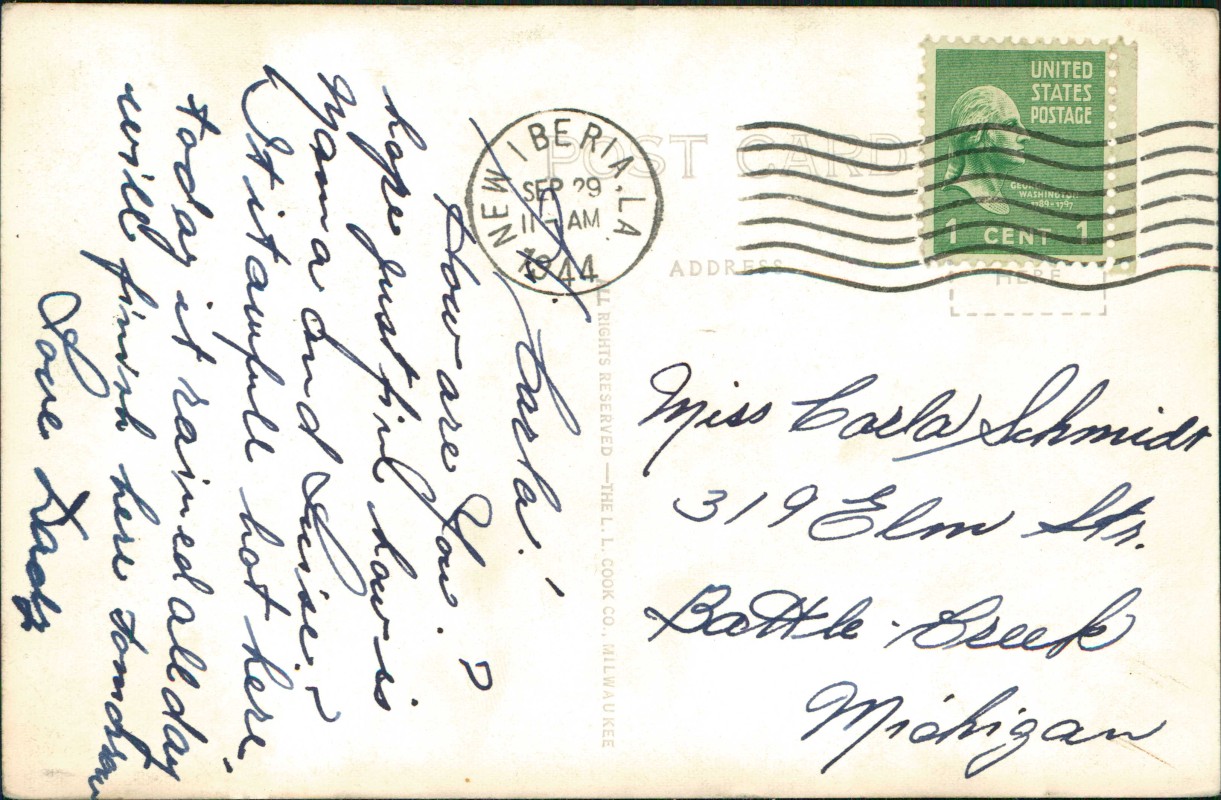 POST CARD
ADDRESS
HERE
UNITED
STATES
POSTAGE
GEORGE
WASHINGTON
1789-1797
1 CENT 1
NEW IBERIA, LA.
SEP 29
11 AM
1944
ALL RIGHTS RESERVED — THE L. L. COOK CO., MILWAUKEE
Carla!
How are You. ?
hope just fine how is
Mama and Luise. ?
It it awfull hot here.
today it rained all day
will finish here tomorrow
Love Dady
Miss Carla Schmidt
319 Elm Str.
Battle-Creek
Michigan